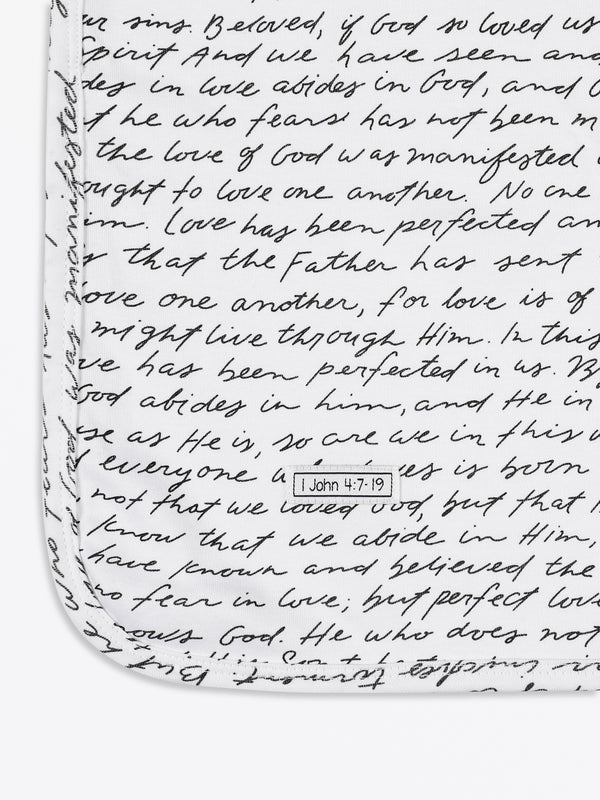 ur sins. Beloved, if God so loved us
Spirit And we have seen and
des in love abides in God, and G
t he who fears has not been m
the love of God was manifested
ought to love one another. No one
im. Love has been perfected am
s that the Father has sent
love one another, for love is of
might live through Him. In this
ve has been perfected in us. By
God abides in him, and He in
use as He is, so are we in this w
everyone who loves is born
1 John 4:7-19
not that we loved God, but that H
Know that we abide in Him,
have known and believed the
no fear in love; but perfect love
nows God. He who does not
was manifested
But he who
involves torment.